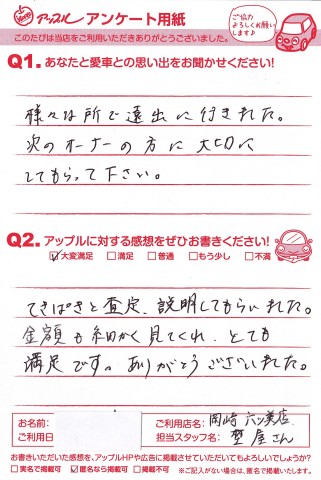 アップル アンケート用紙
ご協力
よろしくお願い
します♪
このたびは当店をご利用いただきありがとうございました。
Q1. あなたと愛車との思い出をお聞かせください!
様々な所で遠出に行きました。
次のオーナーの方に大切に
してもらって下さい。
Q2. アップルに対する感想をぜひお書きください!
☑大変満足 □満足 □普通 □もう少し □不満
てきぱきと査定、説明してもらいました。
金額も細かく見てくれ、とても
満足です。ありがとうございました。
お名前:
ご利用日
ご利用店名: 岡崎 六ツ美店
担当スタッフ名: 堅屋さん
お書きいただいた感想を、アップルHPや広告に掲載させていただいてもよろしいでしょうか?
□実名で掲載可 ☑匿名なら掲載可 □掲載不可 ※ご記入がない場合は、匿名で掲載いたします。